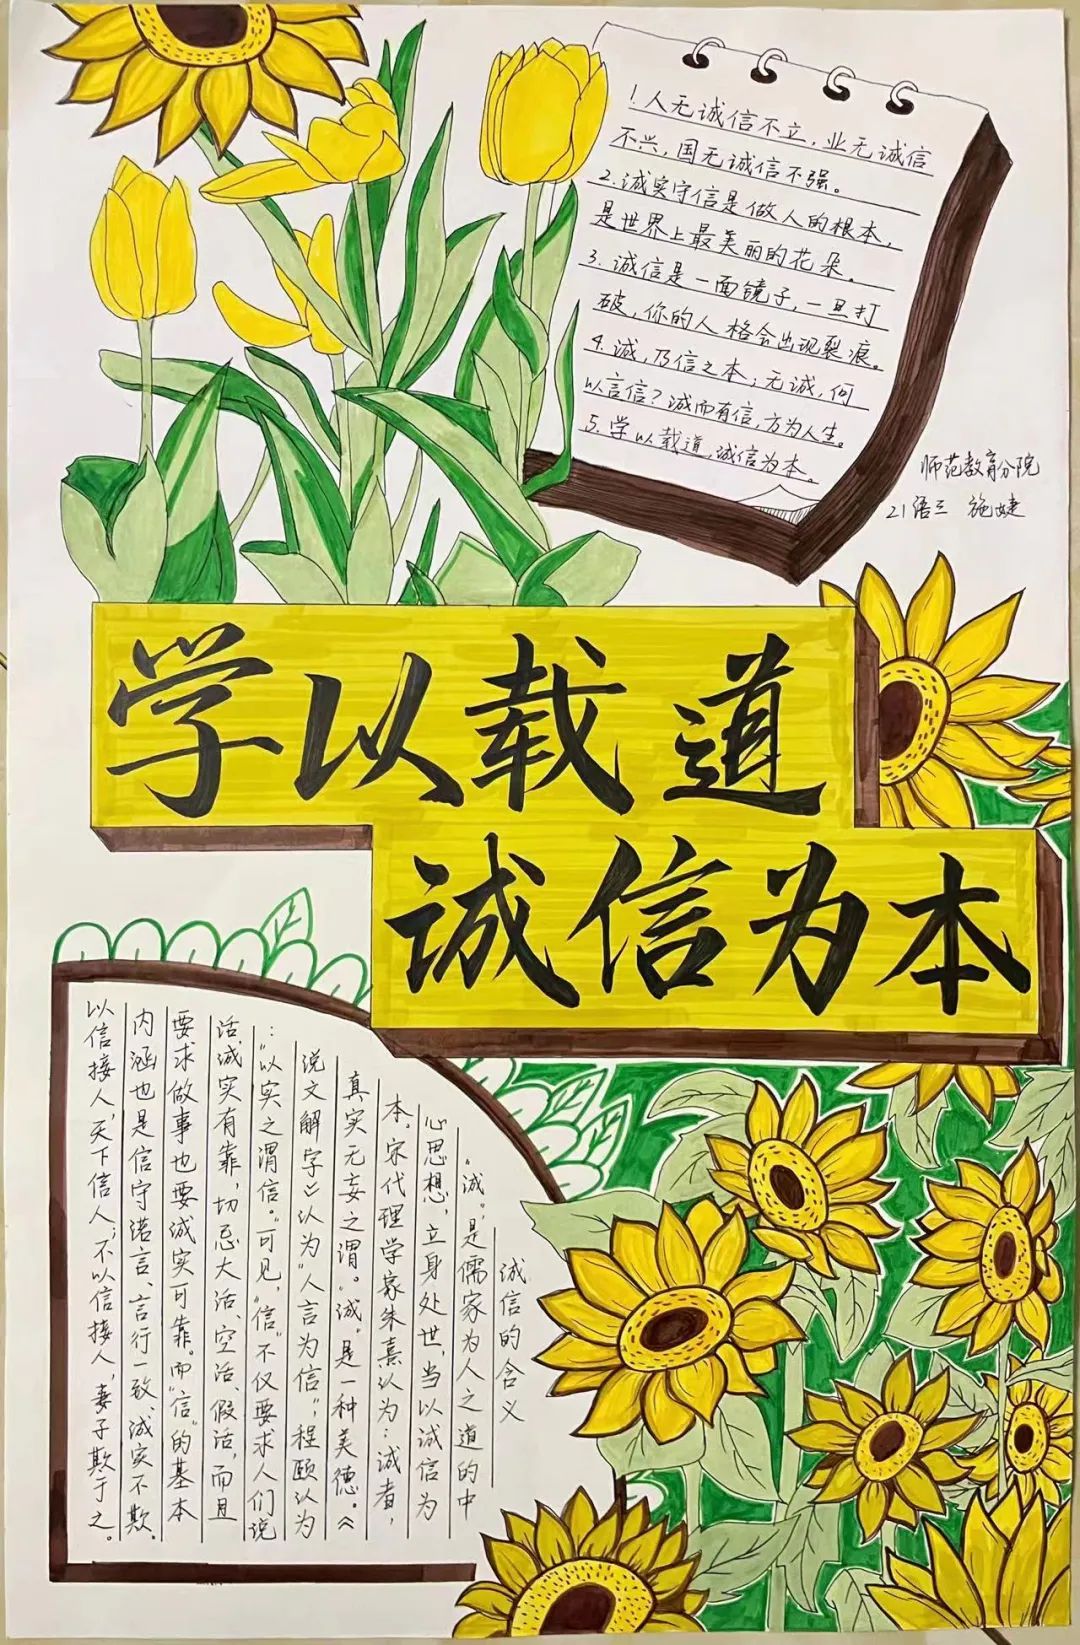 1.人无诚信不立，业无诚信
不兴，国无诚信不强。
2.诚实守信是做人的根本，
是世界上最美丽的花朵。
3.诚信是一面镜子，一旦打
破，你的人格会出现裂痕。
4.诚，乃信之本；无诚，何
以言信？诚而有信，方为人生。
5.学以载道，诚信为本。
师范教育分院
21语三 施婕
学以载道
诚信为本
诚信的含义
“诚”，是儒家为人之道的中
心思想，立身处世，当以诚信为
本。宋代理学家朱熹认为：诚者，
真实无妄之谓。“诚”是一种美德。《
说文解字》认为“人言为信”；程颐认为
：“以实之谓信。”可见，“信”不仅要求人们说
话诚实有靠，切忌大话、空话、假话，而且
要求做事也要诚实可靠。而“信”的基本
内涵也是信守诺言、言行一致、诚实不欺。
以信接人，天下信人；不以信接人，妻子欺于之。